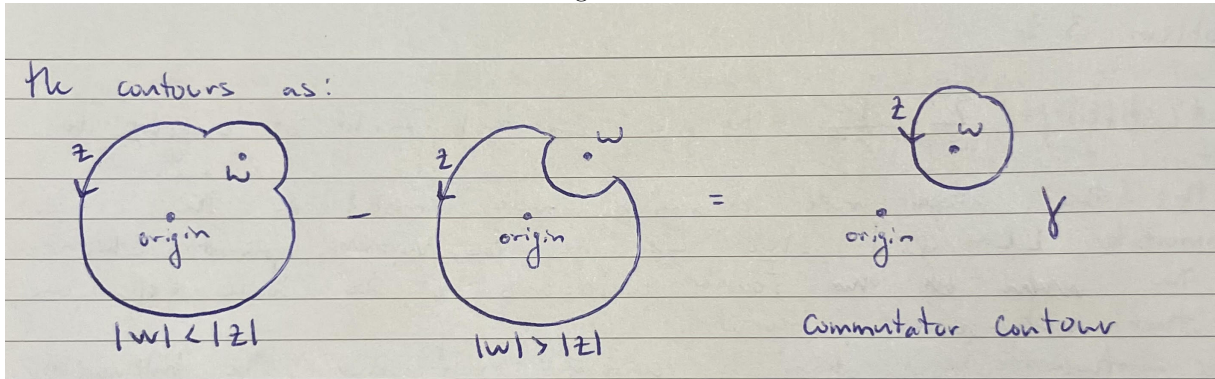 the contours as:
z w origin - z w origin = z w origin γ
|w| < |z| |w| > |z| Commutator Contour